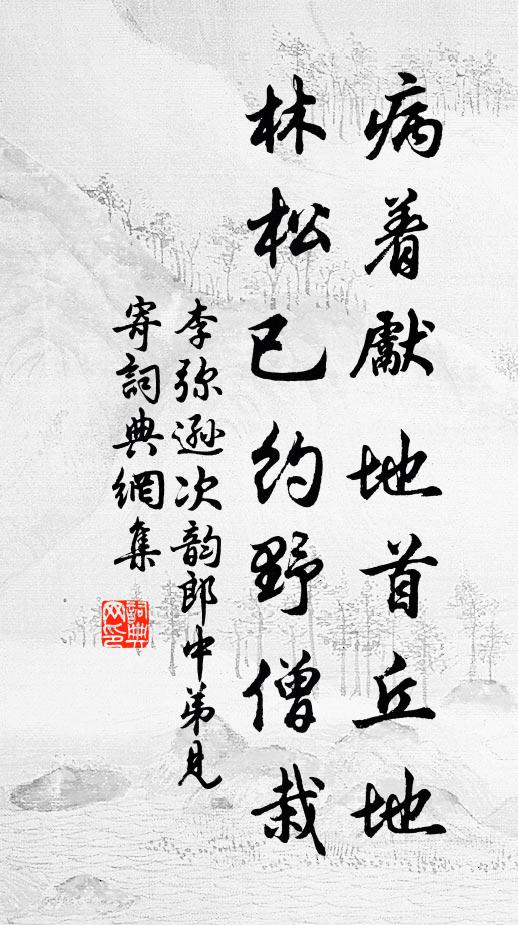 病着獻地首丘地
林松已約野僧栽
李弥遜次韵郎中弟見
寄詞典網集
詞典
网印